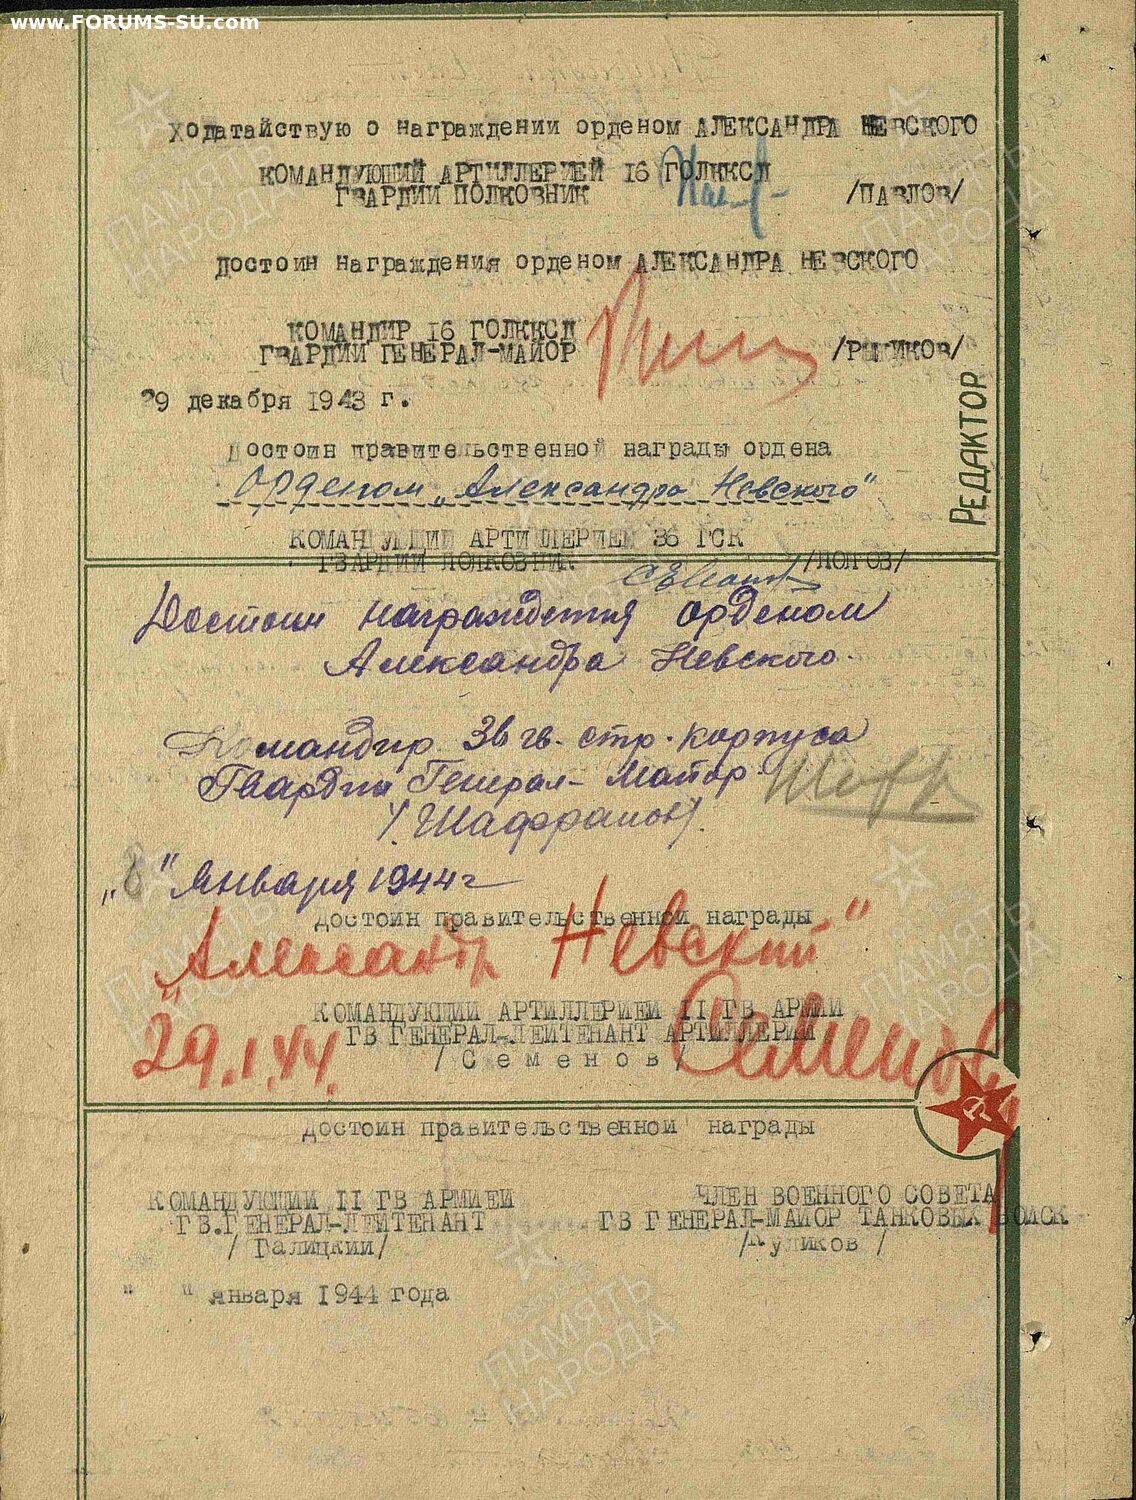 www.FORUMS-SU.com
Ходатайствую о награждении орденом АЛЕКСАНДРА НЕВСКОГО
КОМАНДУЮЩИЙ АРТИЛЛЕРИЕЙ 16 ГОЛККСД
ГВАРДИИ ПОЛКОВНИК /ПАВЛОВ/
Достоин награждения орденом АЛЕКСАНДРА НЕВСКОГО
КОМАНДИР 16 ГОЛККСД
ГВАРДИИ ГЕНЕРАЛ-МАЙОР /РЫЖИКОВ/
29 декабря 1943 г.
РЕДАКТОР
Достоин правительственной награды ордена
Орденом „Александра Невского"
КОМАНДУЮЩИЙ АРТИЛЛЕРИЕЙ 36 ГСК
ГВАРДИИ ПОЛКОВНИК
Достоин награждения орденом
Александра Невского.
Командир 36 гв. стр. корпуса
Гвардии Генерал-Майор
/Шафранов/.
„8" Января 1944 г
Достоин правительственной награды
„Александр Невский"
КОМАНДУЮЩИЙ АРТИЛЛЕРИЕЙ II ГВ АРМИИ
ГВ ГЕНЕРАЛ-ЛЕЙТЕНАНТ АРТИЛЛЕРИИ
/Семенов/ Семенов
29.1.44.
Достоин правительственной награды
КОМАНДУЮЩИЙ II ГВ АРМИЕЙ ЧЛЕН ВОЕННОГО СОВЕТА
ГВ.ГЕНЕРАЛ-ЛЕЙТЕНАНТ ГВ ГЕНЕРАЛ-МАЙОР ТАНКОВЫХ ВОЙСК
/Галицкий/ /Куликов /
" " января 1944 года
ПАМЯТЬ НАРОДА
ПАМЯТЬ НАРОДА
ПАМЯТЬ НАРОДА
ПАМЯТЬ НАРОДА
ПАМЯТЬ НАРОДА